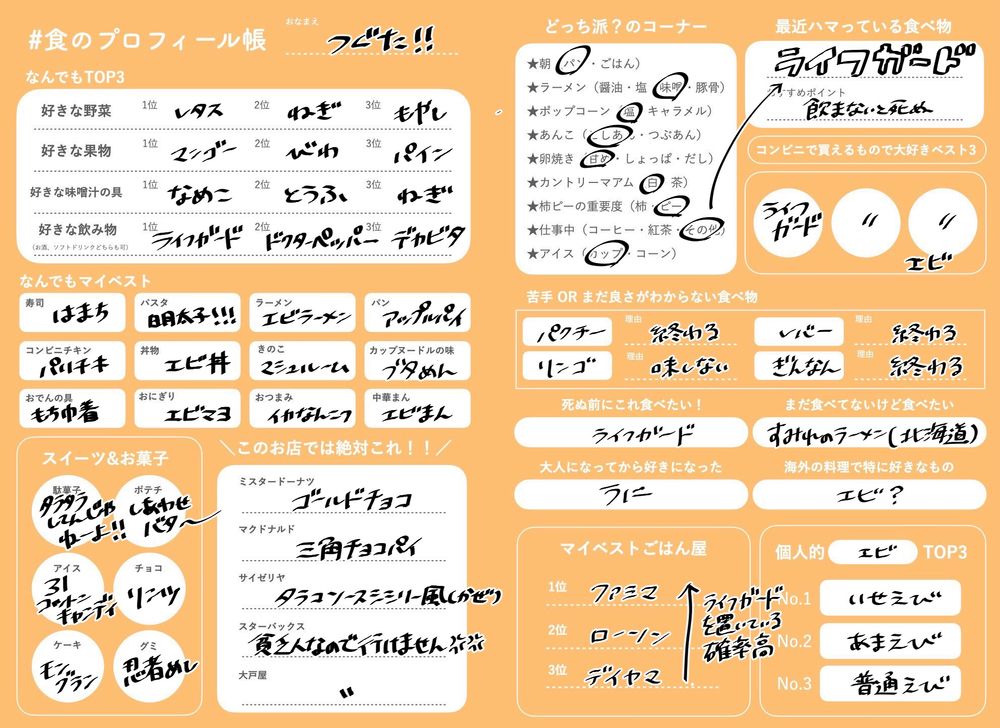 #食のプロフィール帳
おなまえ
つぐた!!
なんでもTOP3
好きな野菜 1位 レタス 2位 ねぎ 3位 もやし
好きな果物 1位 マンゴー 2位 びわ 3位 パイン
好きな味噌汁の具 1位 なめこ 2位 とうふ 3位 ねぎ
好きな飲み物 1位 ライフガード 2位 ドクターペッパー 3位 デカビタ
(お酒、ソフトドリンクどちらも可)
なんでもマイベスト
寿司 はまち
パスタ 明太子!!!
ラーメン エビラーメン
パン アップルパイ
コンビニチキン パリチキ
丼物 エビ丼
きのこ マシュルーム
カップヌードルの味 ブタめん
おでんの具 もち巾着
おにぎり エビマヨ
おつまみ イカなんこつ
中華まん エビまん
スイーツ&お菓子
駄菓子
タラタラ
してんじゃ
ねーよ!!
ポテチ
しあわせ
バタ〜
アイス
31
コットン
キャンディ
チョコ
リンツ
ケーキ
モン
ブラン
グミ
忍者めし
＼このお店では絶対これ！！／
ミスタードーナツ
ゴールドチョコ
マクドナルド
三角チョコパイ
サイゼリヤ
タラコソースシシリー風
スターバックス
貧乏人なので行けません
大戸屋
〃
どっち派？のコーナー
★朝（パン・ごはん）
★ラーメン（醤油・塩・味噌・豚骨）
★ポップコーン（塩・キャラメル）
★あんこ（こしあん・つぶあん）
★卵焼き（甘め・しょっぱ・だし）
★カントリーマアム（白・茶）
★柿ピーの重要度（柿・ピー）
★仕事中（コーヒー・紅茶・その他）
★アイス（カップ・コーン）
最近ハマっている食べ物
ライフガード
おすすめポイント
飲まないと死ぬ
コンビニで買えるもので大好きベスト3
ライフ
ガード
〃
〃
エビ
苦手 OR まだ良さがわからない食べ物
パクチー 理由 終わる
レバー 理由 終わる
リンゴ 理由 味しない
ぎんなん 理由 終わる
死ぬ前にこれ食べたい！
ライフガード
まだ食べてないけど食べたい
すみれのラーメン(北海道)
大人になってから好きになった
うに
海外の料理で特に好きなもの
エビ?
マイベストごはん屋
1位 ファミマ
2位 ローソン
3位 デイヤマ
ライフガード
を置いている
確率高
個人的 エビ TOP3
No.1 いせえび
No.2 あまえび
No.3 普通えび